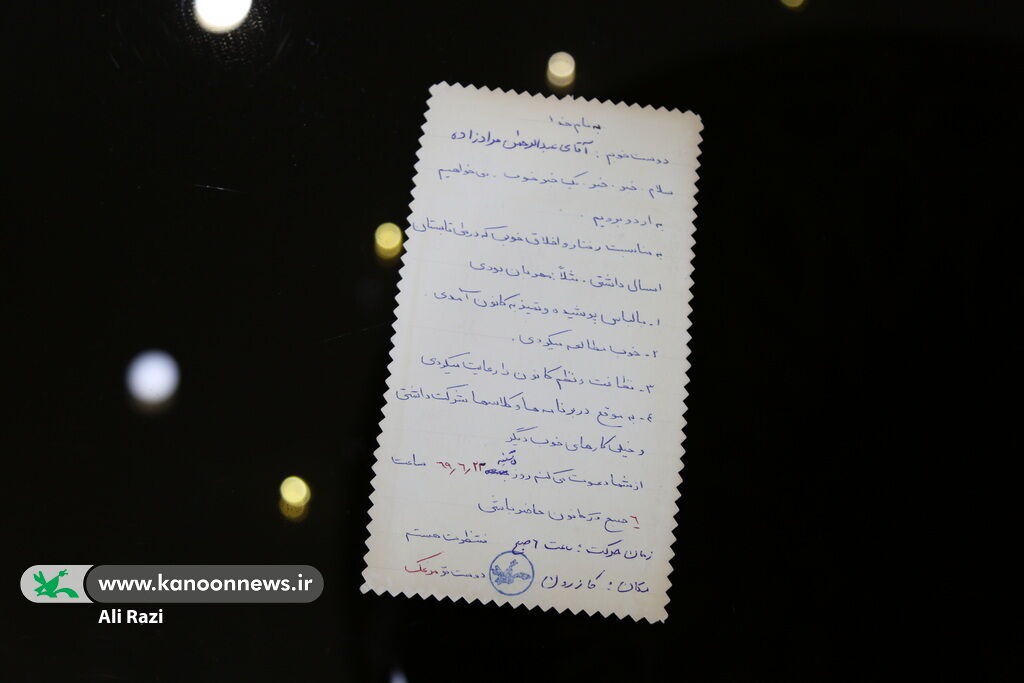 به نام خدا
دوست خوبم : آقای عبدالرحمن مرادزاده
سلام . خبر . خبر . یک خبر خوب . می‌خواهیم
به اردو برویم . .
به مناسبت رفتار و اخلاق خوب که در طی تابستان
امسال داشتی . مثلاً : مهربان بودی
۱- با لباس پوشیده و تمیز به کانون آمدی .
۲- خوب مطالعه میکردی .
۳- نظافت و نظم کانون را رعایت میکردی
۴- به موقع در برنامه ها و کلاسها شرکت داشتی
و خیلی کارهای خوب دیگر
از شما دعوت می کنم روز ۶۹/۶/۲۳ ساعت
۶ صبح در کانون حاضر باشی
زمان حرکت : ساعت ۶ صبح منتظرت هستم
مکان : کازرون دوست تو مرغک
www.kanoonnews.ir
Ali Razi